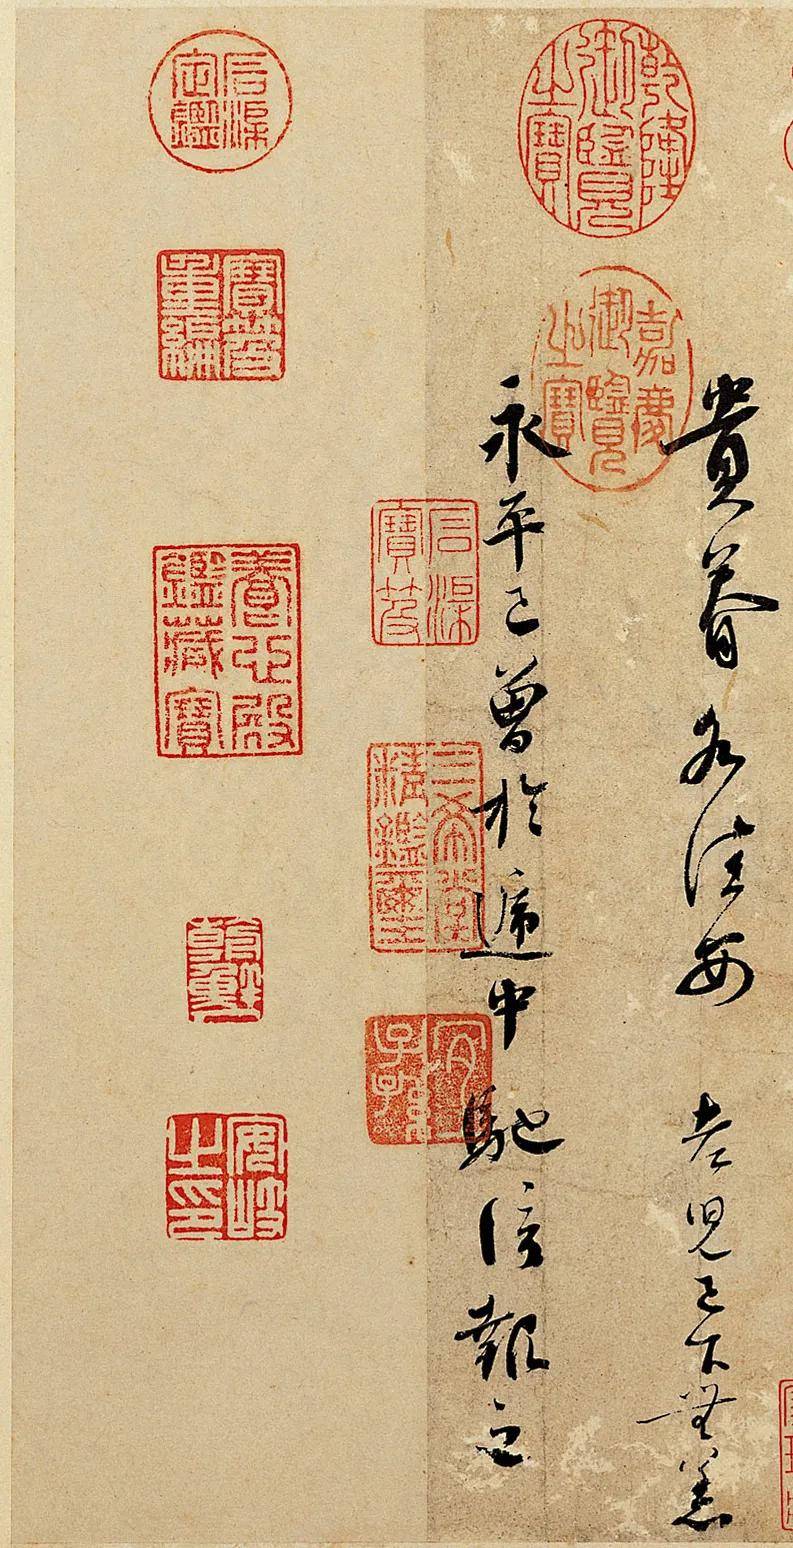 貴眷各佳安 老兒已下無恙
永平已曾於遞中馳信報之
乾隆御覽之寶
嘉慶御覽之寶
石渠寶笈
三希堂精鑑璽
宜子孫
石渠定鑑
寶笈重編
養心殿鑑藏寶
安岐之印